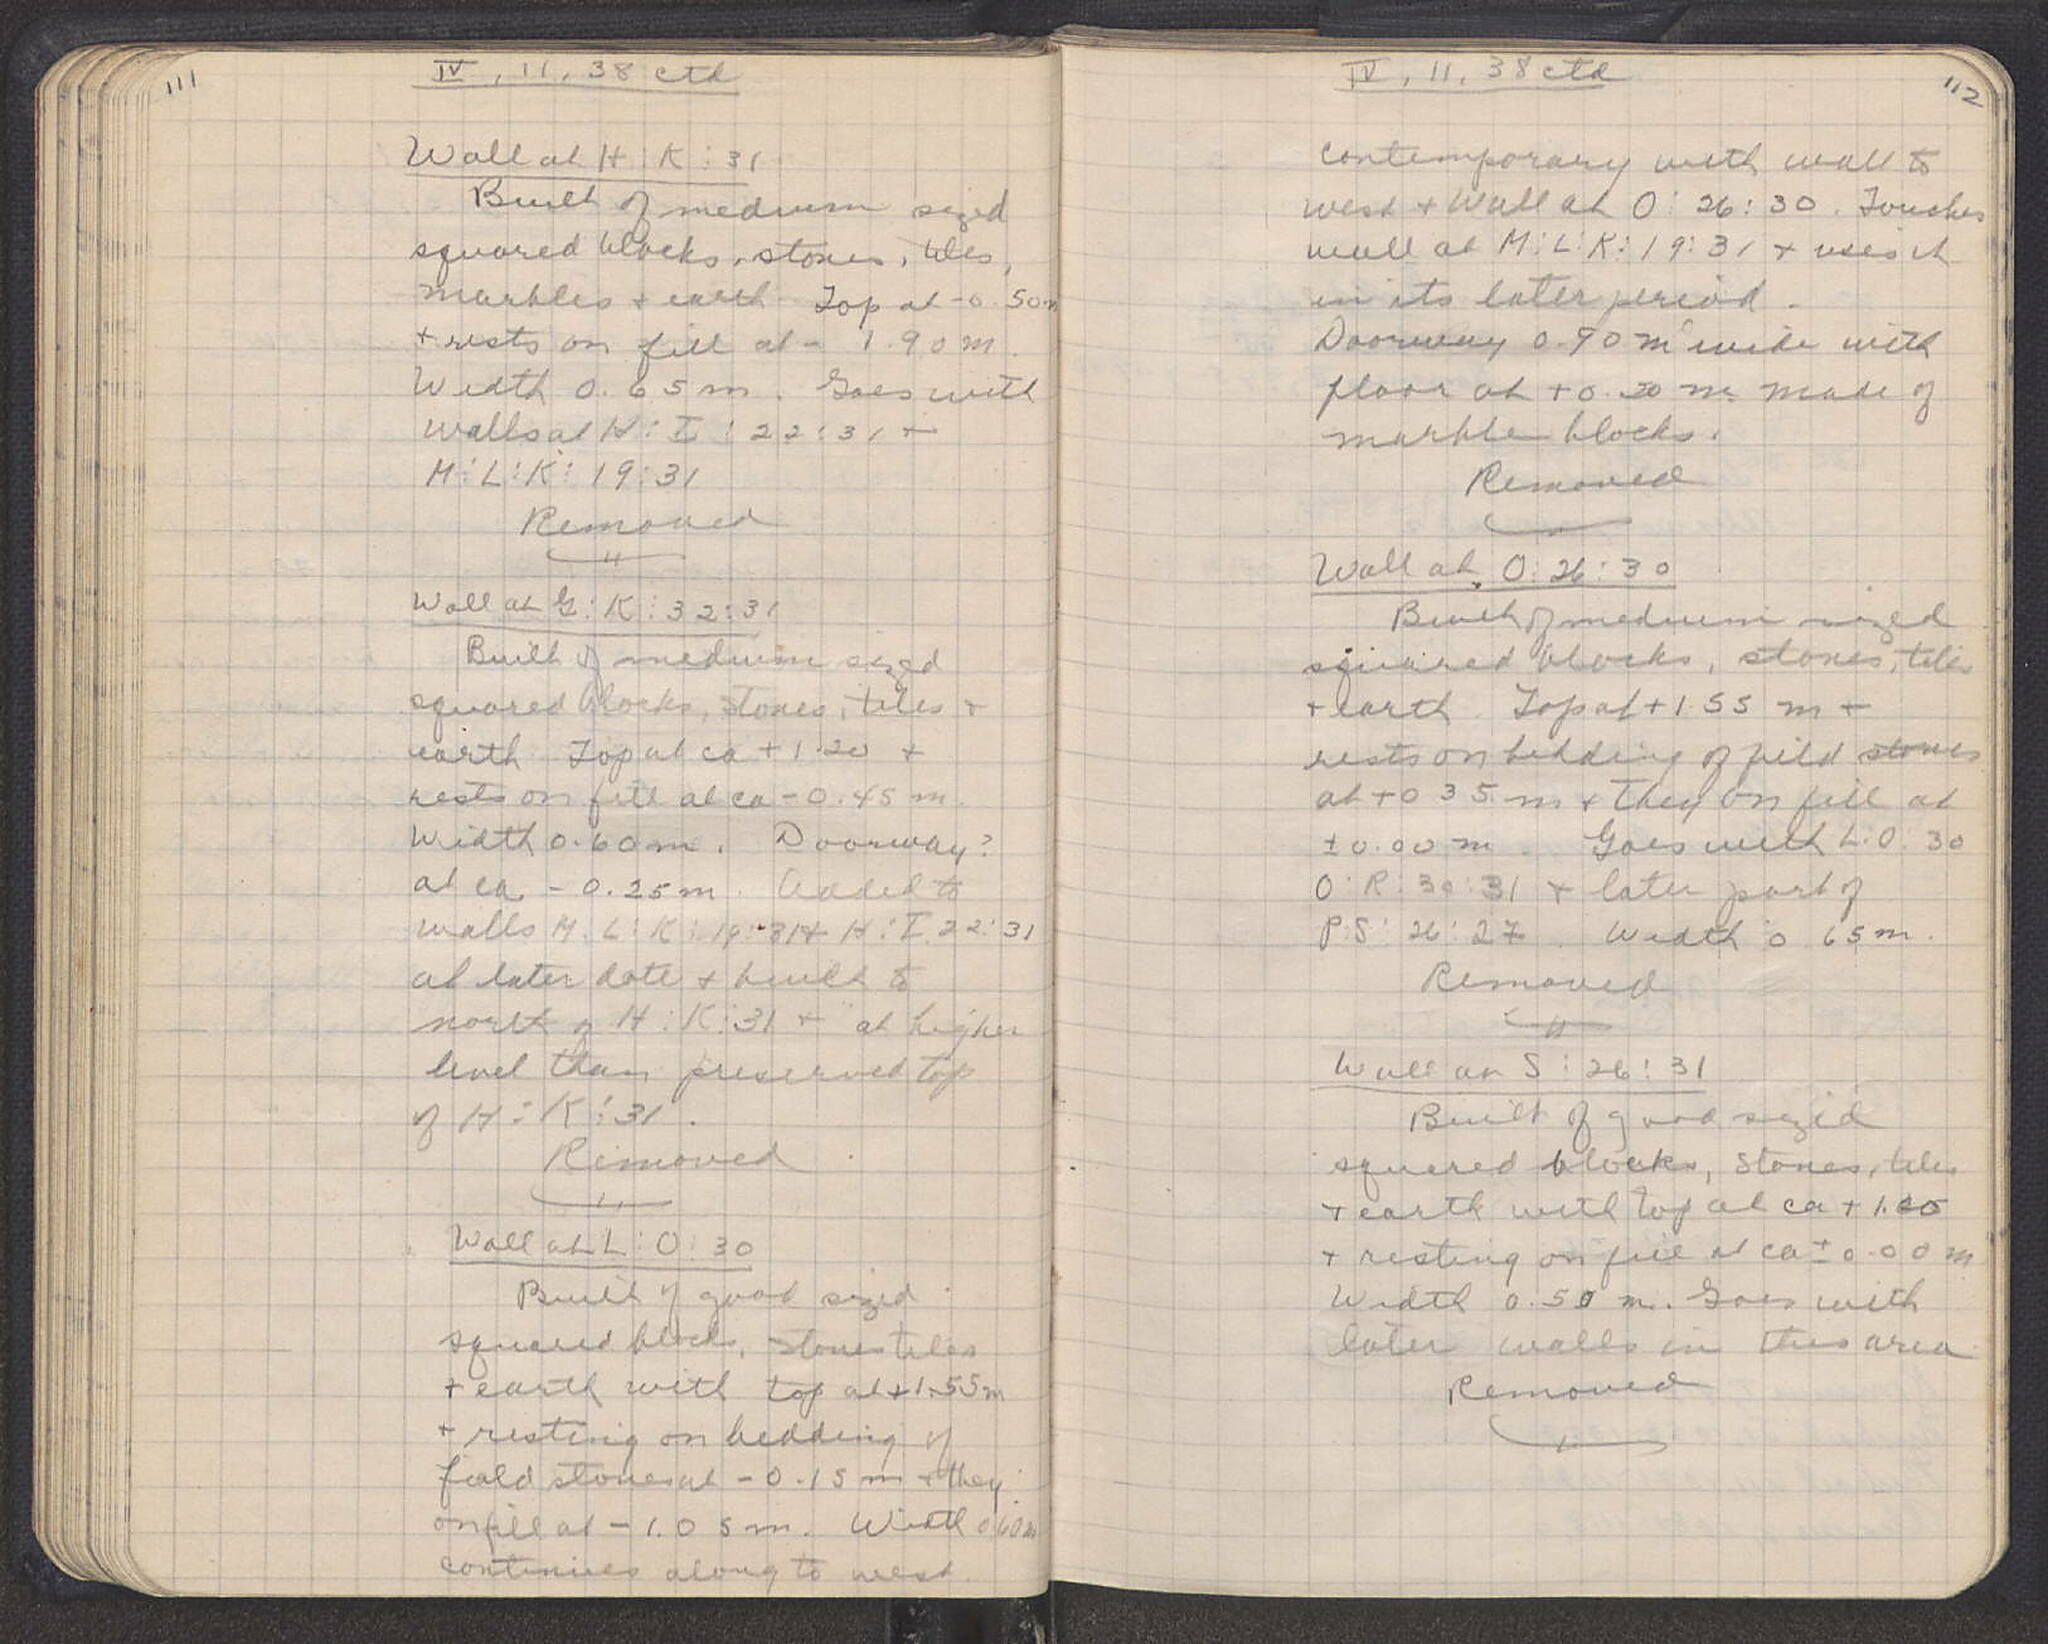 111
IV, 11, 38 ctd
Wall at H : K : 31
Built of medium sized
squared blocks, stones, tiles,
marbles + earth Top at -0.50m
+ rests on fill at - 1.90 m.
Width 0.65 m. Goes with
walls at H : I : 22 : 31 +
M : L : K : 19 : 31
Removed
Wall at G : K : 32 : 31
Built of medium sized
squared blocks, stones, tiles +
earth Top at ca + 1.20 +
rests on fill at ca - 0.45 m.
Width 0.60 m. Doorway?
at ca - 0.25 m. Added to
walls M : L : K : 19 : 31 + H : I 22 : 31
at later date + built to
north of H : K : 31 + at higher
level than preserved top
of H : K : 31.
Removed
Wall at L : O : 30
Built of good sized
squared blocks, stones tiles
+ earth with top at +1.55m
+ resting on bedding of
field stones at - 0.15 m + they
on fill at - 1.05 m. Width 0.60m
continues along to west.
112
IV, 11, 38 ctd
contemporary with wall to
west + wall at O : 26 : 30. Touches
wall at M : L : K : 19 : 31 + uses it
in its later period.
Doorway 0.90 m wide with
floor at +0.20 m. made of
marble blocks.
Removed
Wall at O : 26 : 30
Built of medium sized
squared blocks, stones, tiles
+ earth Top at +1.55 m +
rests on bedding of field stones
at +0 35 m + they on fill at
±0.00 m. Goes with L : O : 30
O : R : 30 : 31 + later part of
P : S : 26 : 27. Width 0 65 m.
Removed
Wall at S : 26 : 31
Built of good sized
squared blocks, stones, tiles
+ earth with top at ca +
+ resting on fill at ca ± 0.00 m
Width 0.50 m. Goes with
later walls in this area
Removed